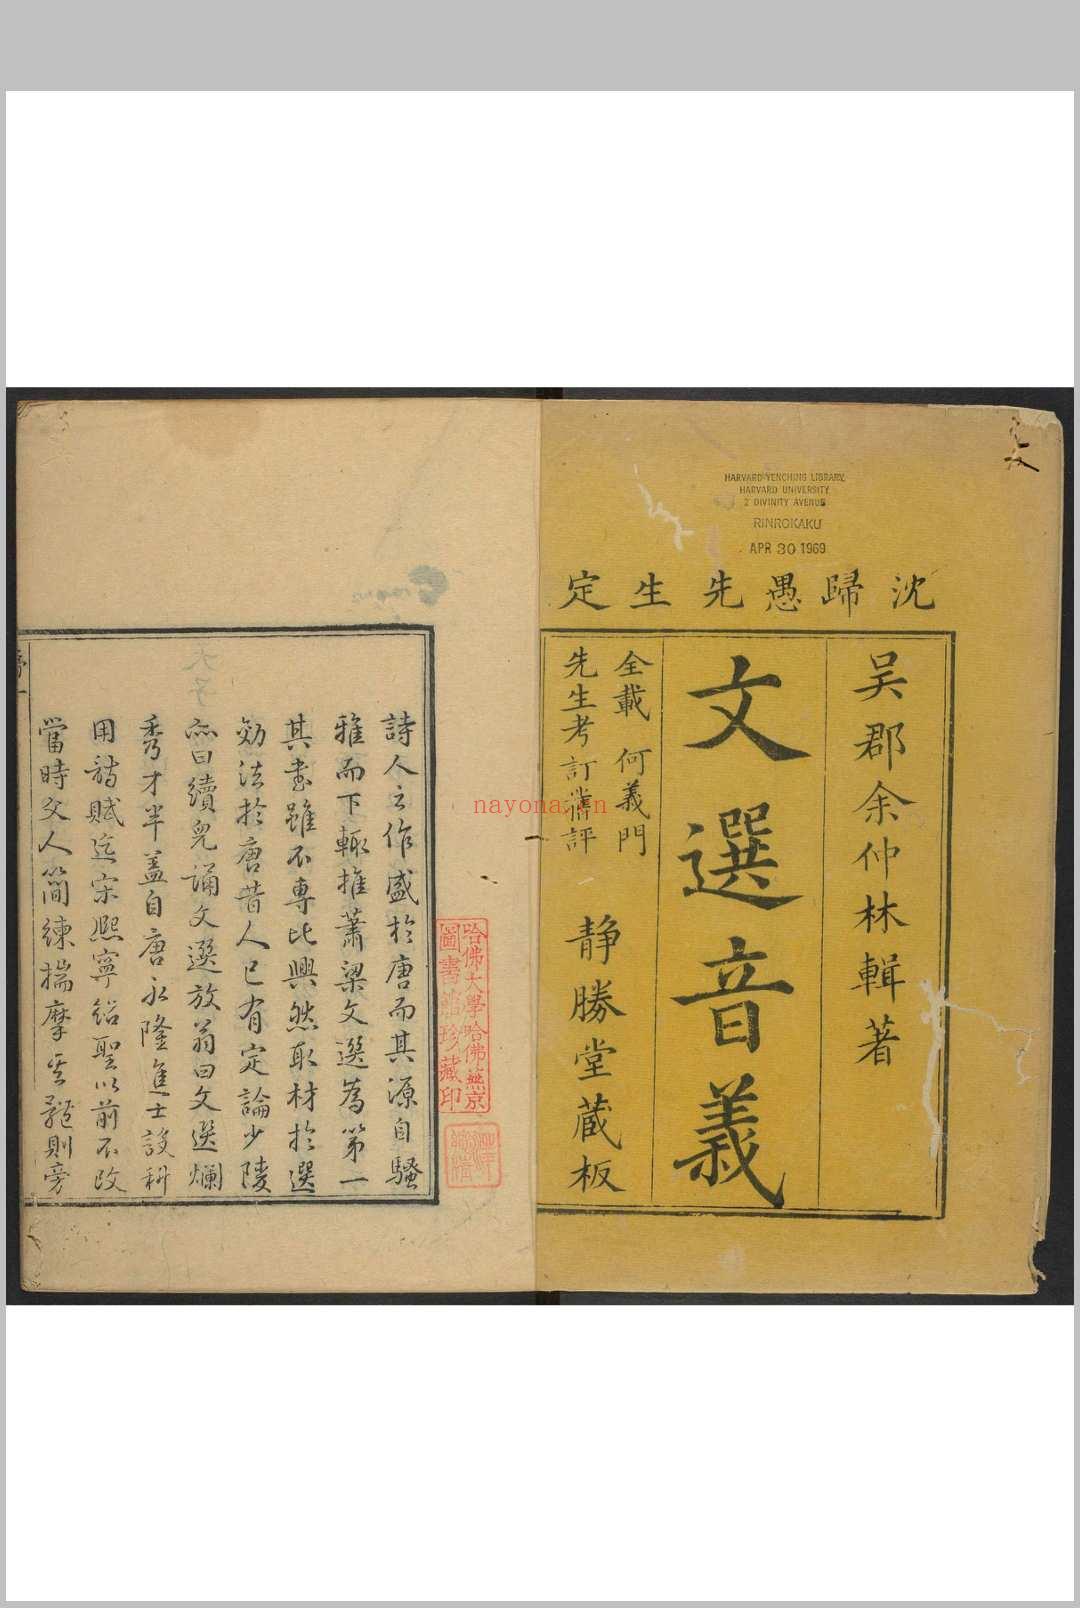 HARVARD-YENCHING LIBRARY
HARVARD UNIVERSITY
2 DIVINITY AVENUE
RINROKAKU
APR 30 1969
沈歸愚先生定
吴郡余仲林輯著
文選音義
全載 何義門
先生考訂舊評
靜勝堂蔵板
nayona.cn
哈佛大學哈佛燕京
圖書館珍藏印
詩人之作盛於唐而其源自騷
雅而下輒推蕭梁文選為第一
其書雖不專比興然取材於選
効法於唐昔人已有定論少陵
亦曰續兒誦文選放翁曰文選爛
秀才半盖自唐永隆進士設科
用詩賦迄宋熙寧紹聖以前不改
當時文人簡練揣摩 則旁
序 一